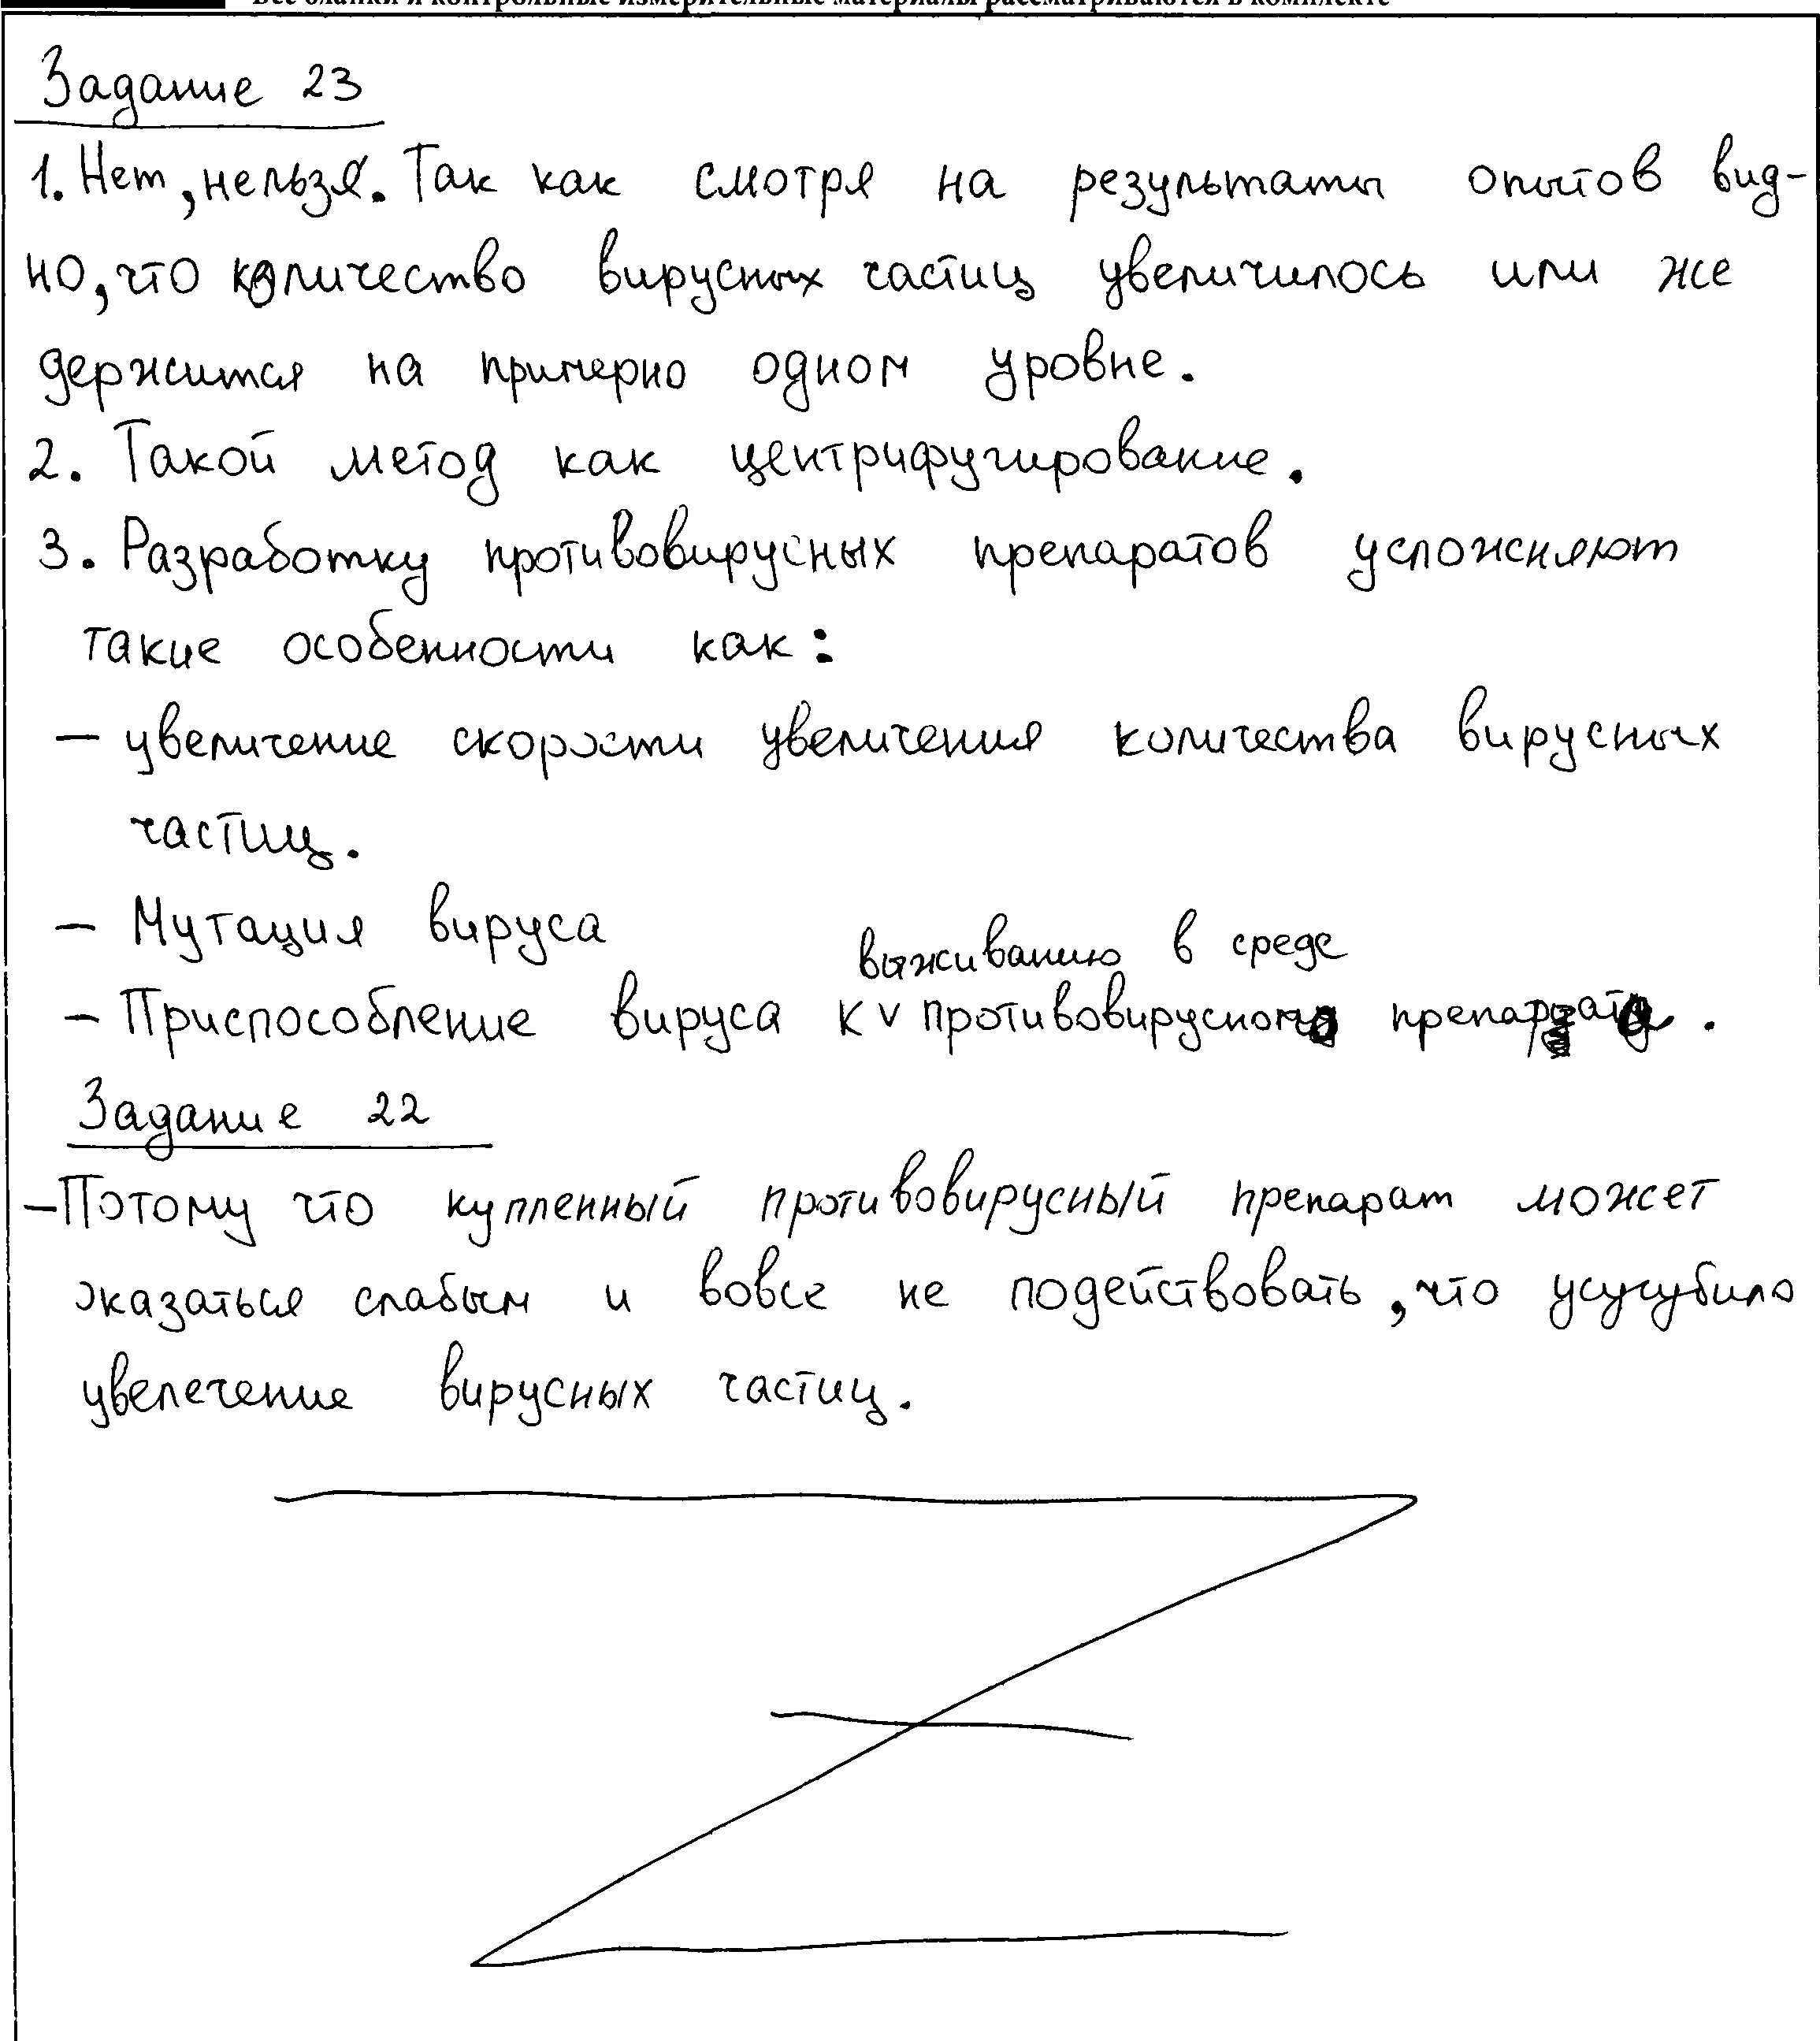 Все бланки и контрольные измерительные материалы рассматриваются в комплекте
Задание 23
1. Нет, нельзя. Так как смотря на результаты опытов вид-
но, что количество вирусных частиц увеличилось или же
держится на примерно одном уровне.
2. Такой метод как центрифугирование.
3. Разработку противовирусных препаратов усложняют
такие особенности как:
— увеличение скорости увеличения количества вирусных
частиц.
— Мутация вируса
выживанию в среде
— Приспособление вируса к v противовирусного препарата.
Задание 22
—Потому что купленный противовирусный препарат может
оказаться слабым и вовсе не подействовать, что усугубило
увелечение вирусных частиц.